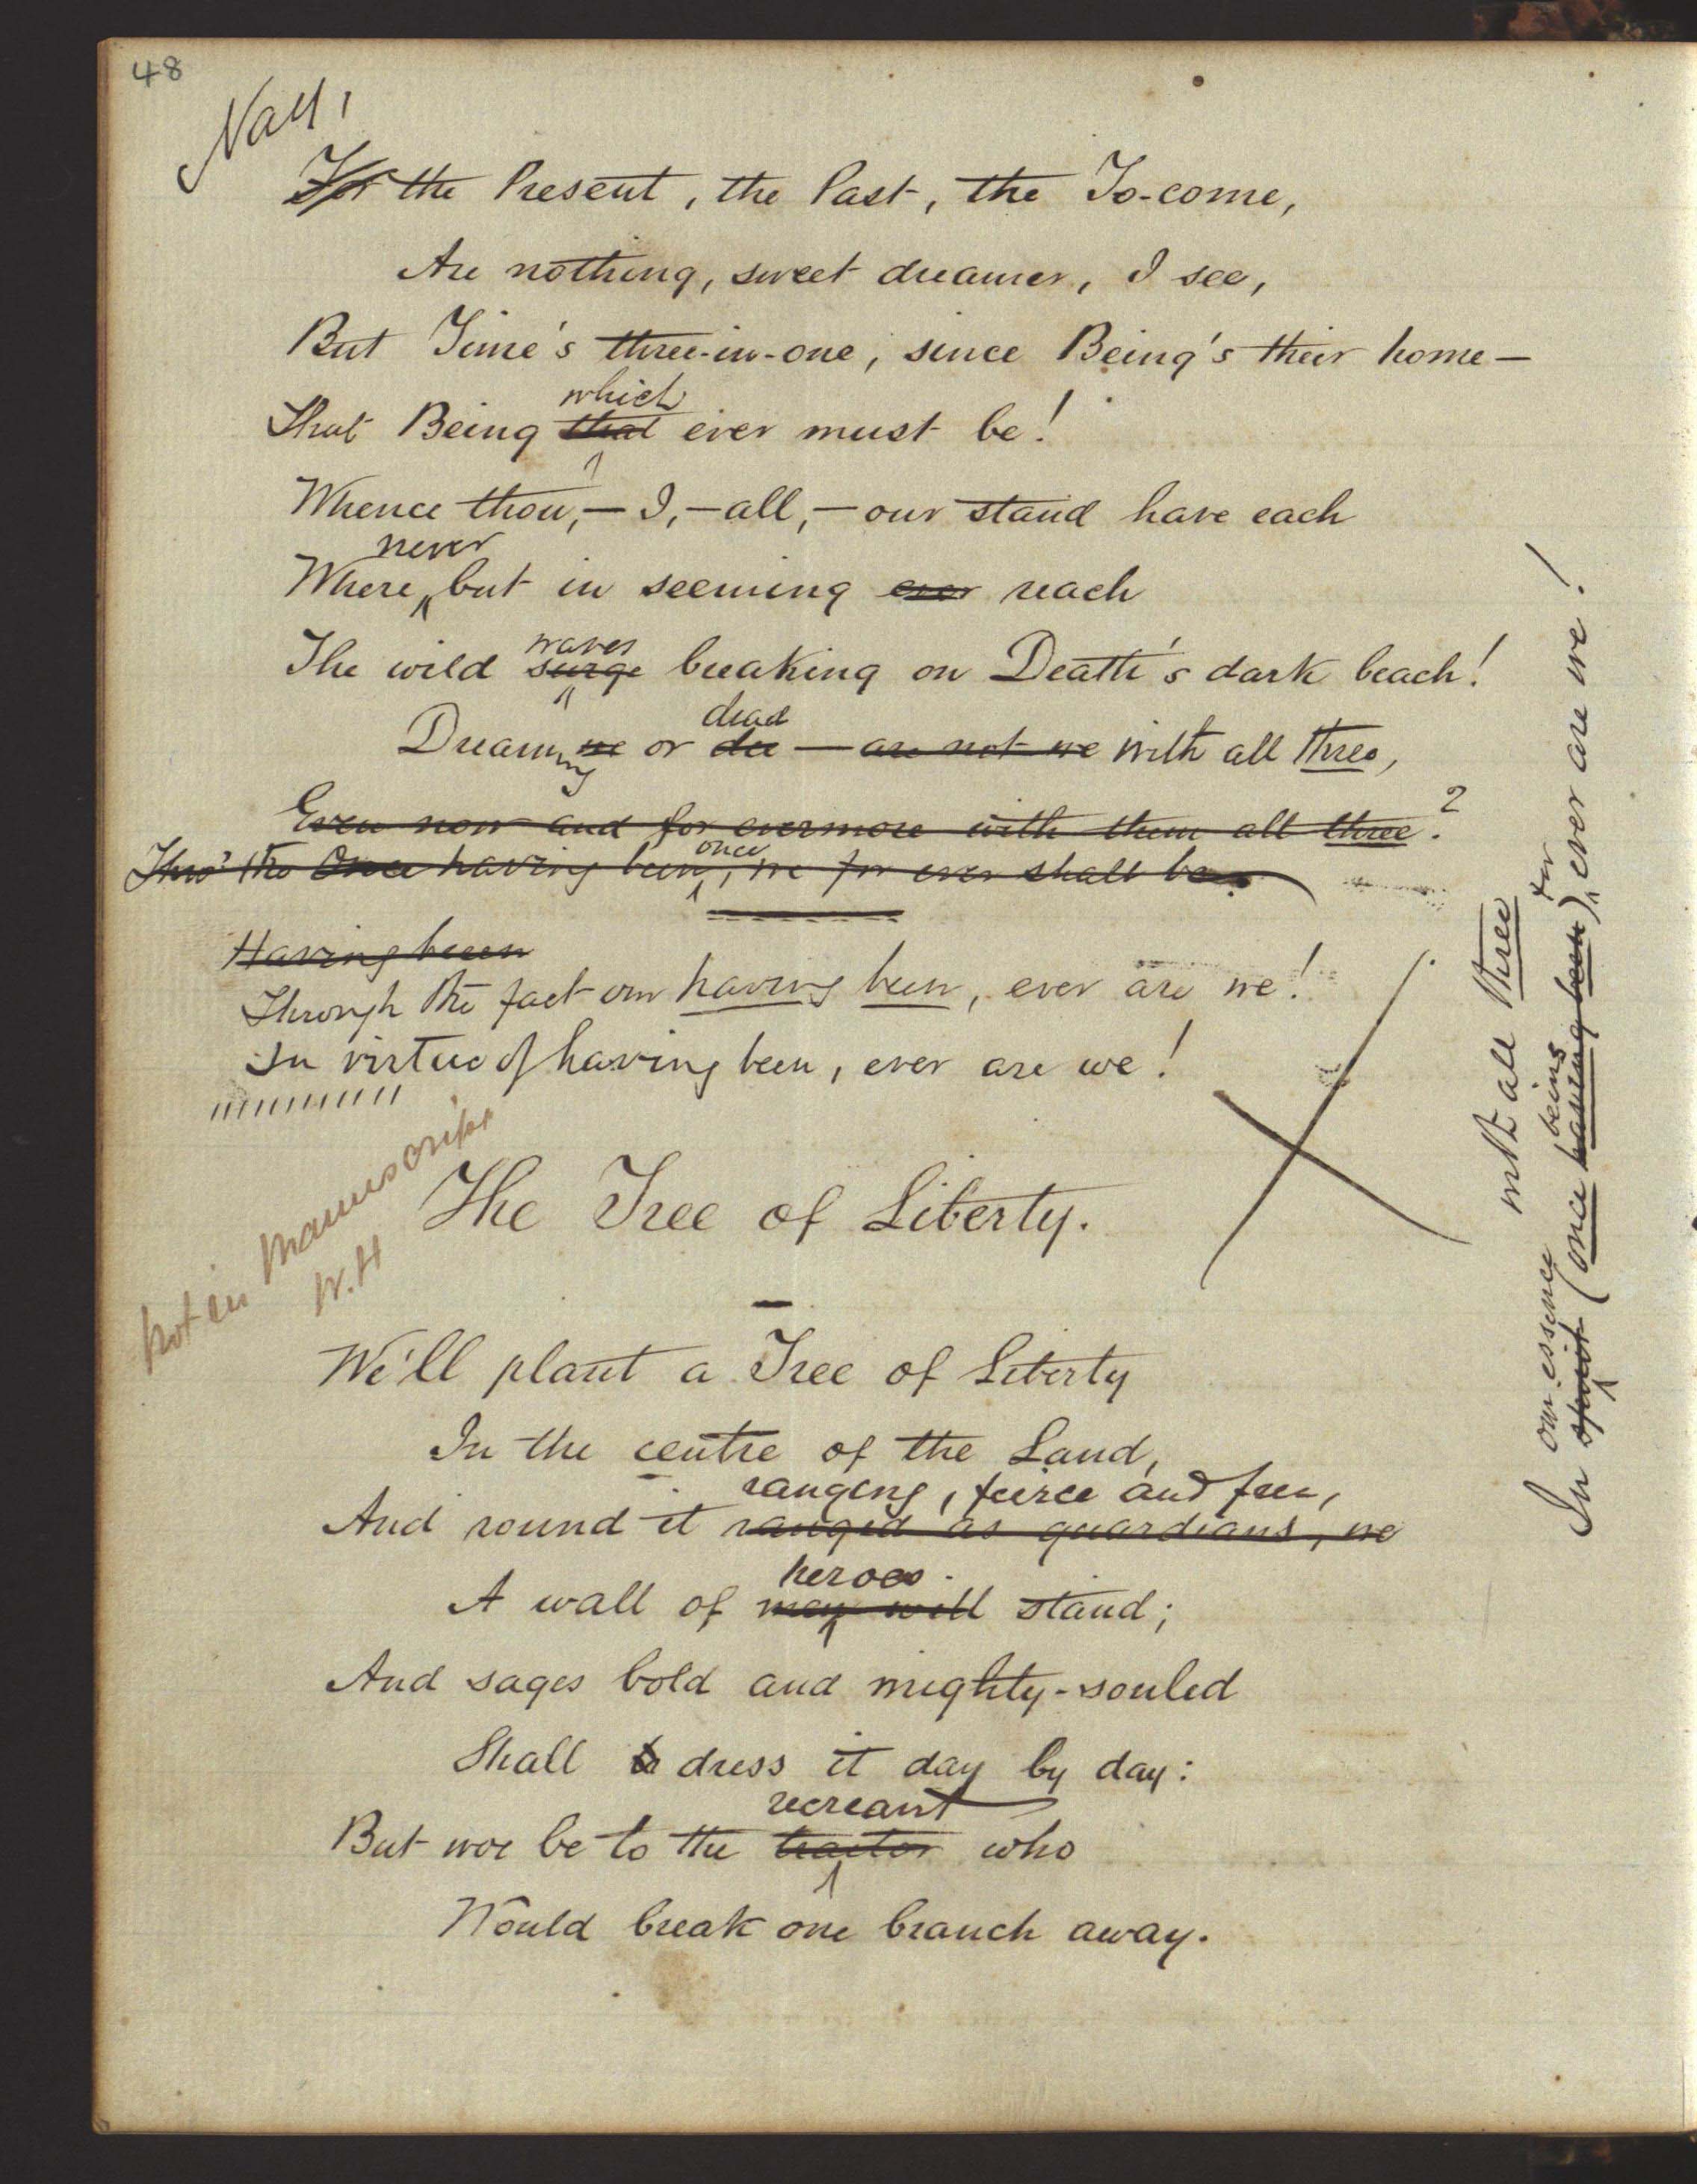 48
Nay,
For the Present, the Past, the To-come,
Are nothing, sweet dreamer, I see,
But Time's three-in-one, since Being's their home—
which
That Being that ever must be!
Whence thou,—I,—all,—our stand have each
never
Where, but in seeming ever reach
waves
The wild surge breaking on Death's dark beach!
dead
Dreaming we or die — are not we with all three,
Even now and for evermore with them all three?
once
Thro' the Once having been, we for ever shall be.
Having been
Through the fact our having been, ever are we!
In virtue of having been, ever are we!
not in Manuscript
W.H
The Tree of Liberty.
We'll plant a Tree of Liberty
In the centre of the Land,
ranging, fierce and free,
And round it ranged as guardians, we
heroes
A wall of men will stand;
And sages bold and mighty-souled
Shall dress it day by day:
recreant
But woe be to the traitor who
Would break one branch away.
with all three
our essence being for
In spirit (once having been), ever are we!